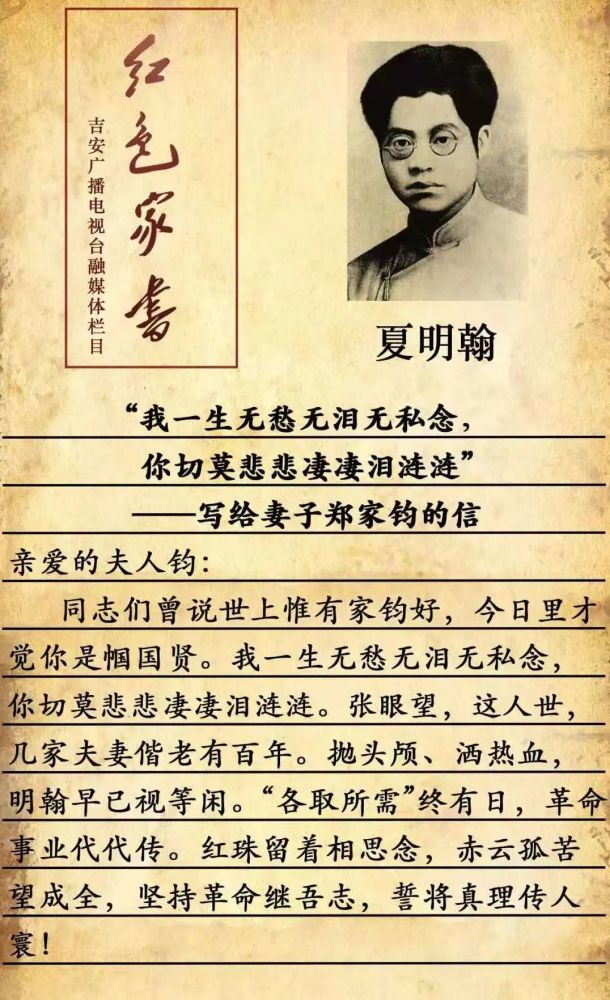 红色家书
吉安广播电视台融媒体栏目
夏明翰
“我一生无愁无泪无私念，
你切莫悲悲凄凄泪涟涟”
——写给妻子郑家钧的信
亲爱的夫人钧：
同志们曾说世上惟有家钧好，今日里才
觉你是帼国贤。我一生无愁无泪无私念，
你切莫悲悲凄凄泪涟涟。张眼望，这人世，
几家夫妻偕老有百年。抛头颅、洒热血，
明翰早已视等闲。“各取所需”终有日，革命
事业代代传。红珠留着相思念，赤云孤苦
望成全，坚持革命继吾志，誓将真理传人
寰！